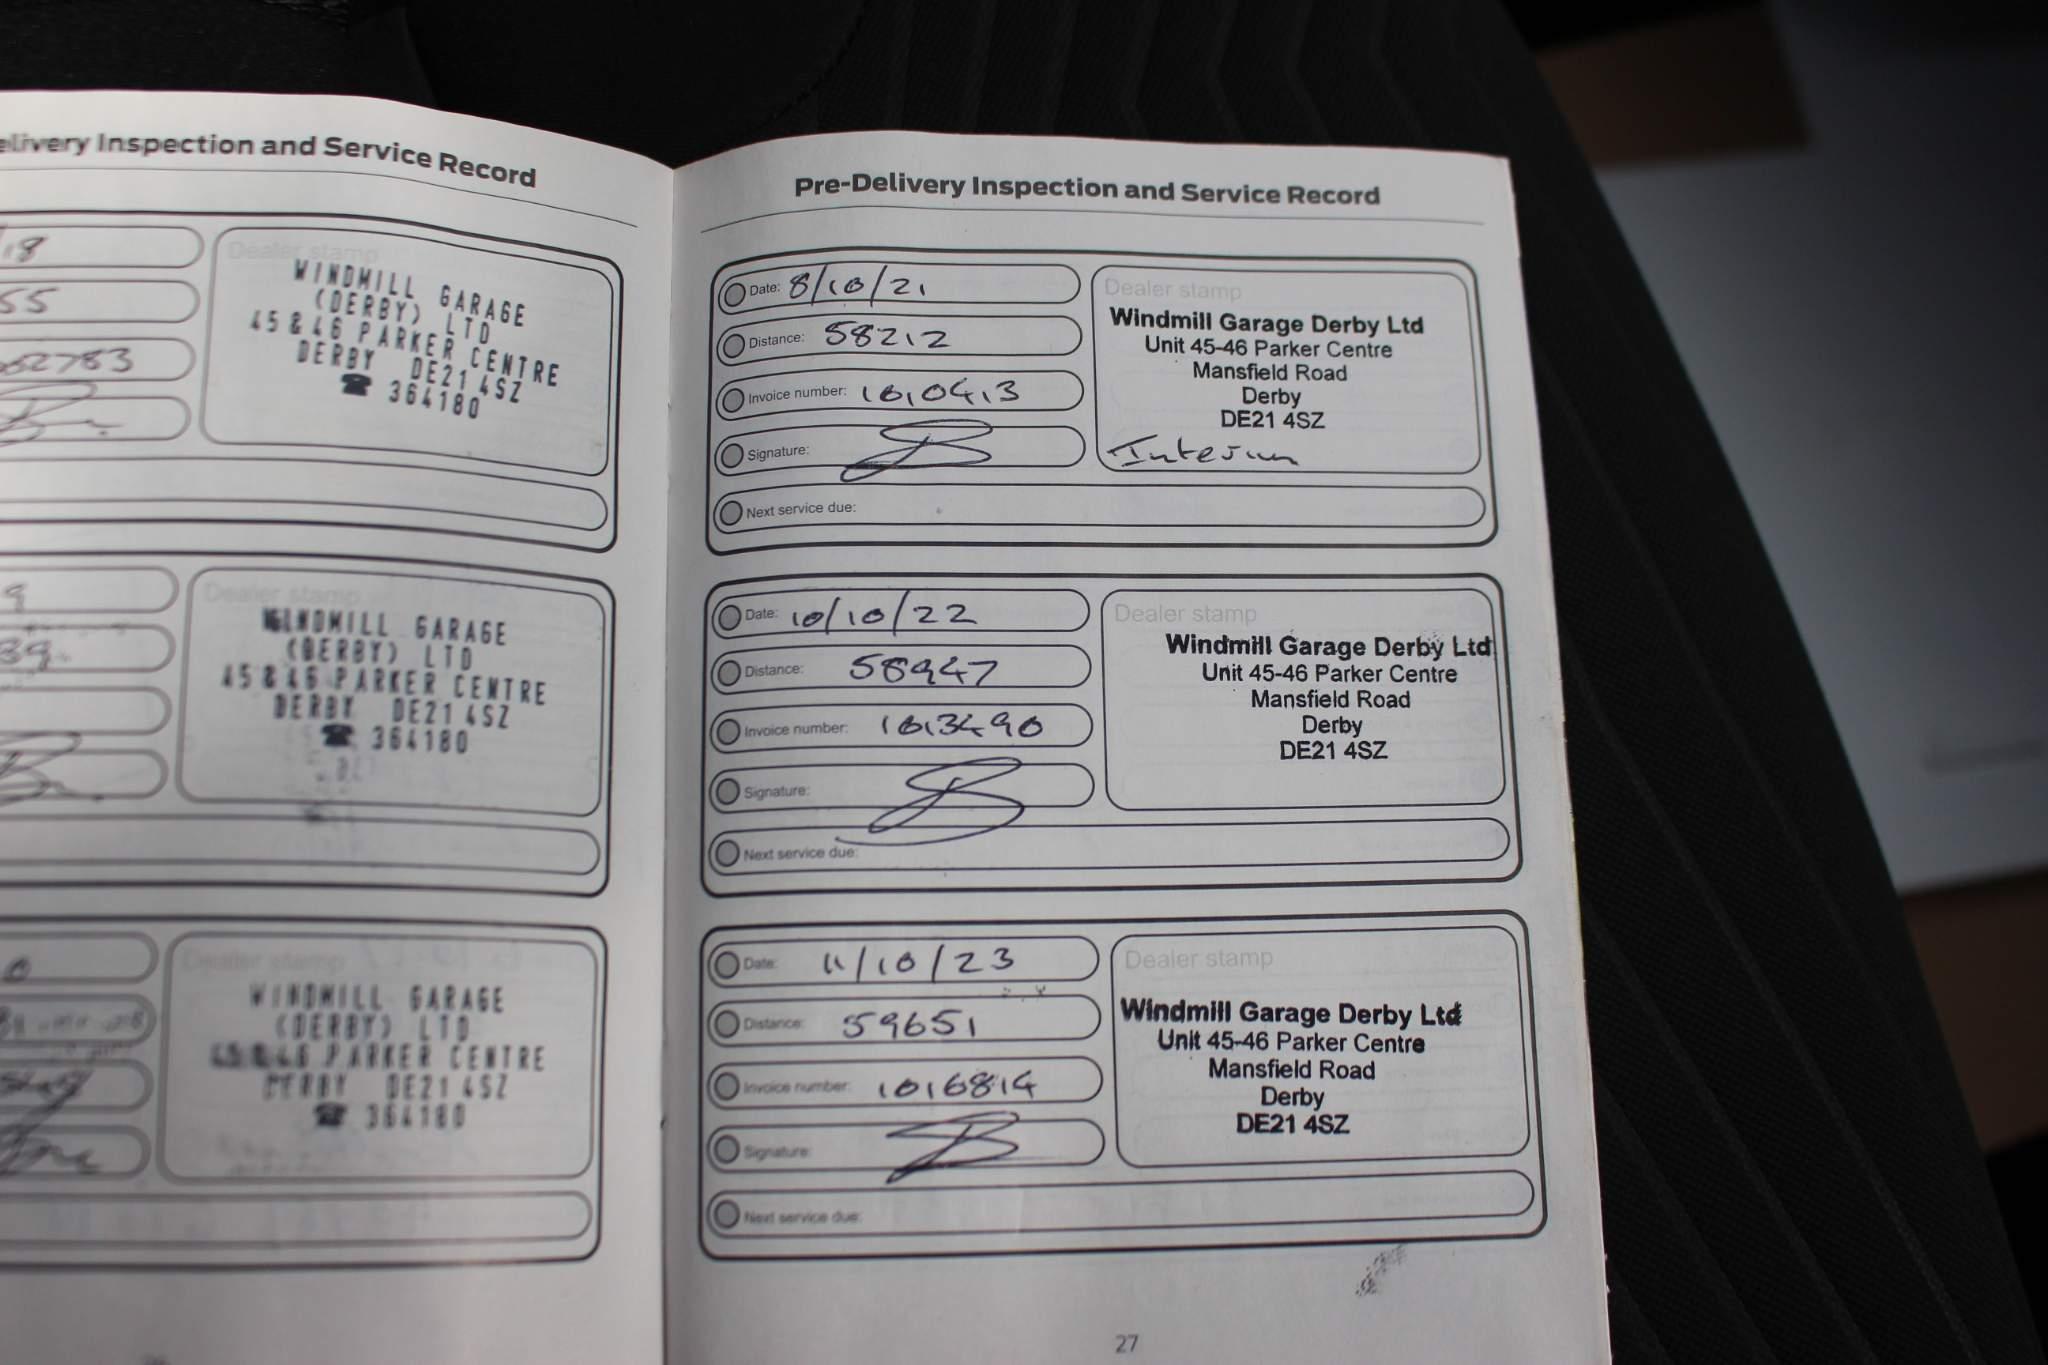 elivery Inspection and Service Record
/18
Dealer stamp
WINDMILL GARAGE
(DERBY) LTD
45 & 46 PARKER CENTRE
DERBY DE21 4SZ
☎ 364180
55
62783
9
Dealer stamp
WINDMILL GARAGE
(DERBY) LTD
45 & 46 PARKER CENTRE
DERBY DE21 4SZ
☎ 364180
39
0
Dealer stamp
WINDMILL GARAGE
(DERBY) LTD
45 & 46 PARKER CENTRE
DERBY DE21 4SZ
☎ 364180
Pre-Delivery Inspection and Service Record
Date: 8/10/21
Distance: 58212
Invoice number: 1010413
Signature:
Next service due:
Dealer stamp
Windmill Garage Derby Ltd
Unit 45-46 Parker Centre
Mansfield Road
Derby
DE21 4SZ
Interim
Date: 10/10/22
Distance: 58947
Invoice number: 1013490
Signature:
Next service due:
Dealer stamp
Windmill Garage Derby Ltd
Unit 45-46 Parker Centre
Mansfield Road
Derby
DE21 4SZ
Date: 11/10/23
Distance: 59651
Invoice number: 1016814
Signature:
Next service due:
Dealer stamp
Windmill Garage Derby Ltd
Unit 45-46 Parker Centre
Mansfield Road
Derby
DE21 4SZ
27